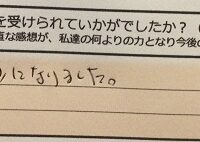 を受けられていかがでしたか？
直な感想が、私達の何よりの力となり今後
になりました。